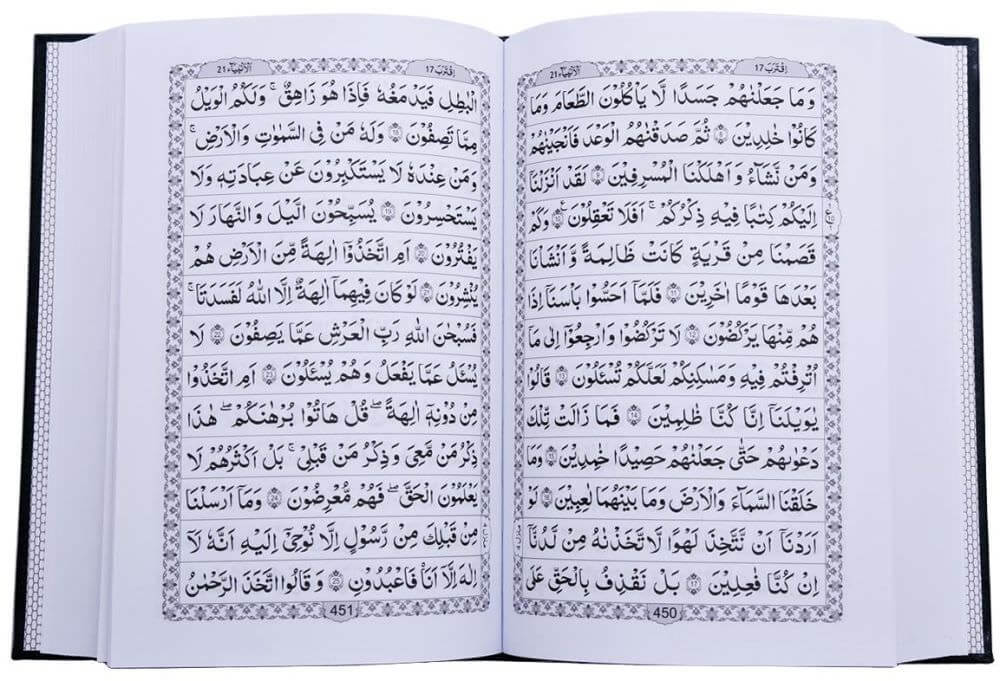 اِقْتَرَبَ 17
الْاَنْبِيَاء 21
وَمَا جَعَلْنٰهُمْ جَسَدًا لَّا يَاْكُلُوْنَ الطَّعَامَ وَمَا
كَانُوْا خٰلِدِيْنَ ۝٨ ثُمَّ صَدَقْنٰهُمُ الْوَعْدَ فَاَنْجَيْنٰهُمْ
وَمَنْ نَّشَآءُ وَاَهْلَكْنَا الْمُسْرِفِيْنَ ۝٩ لَقَدْ اَنْزَلْنَاۤ
اِلَيْكُمْ كِتٰبًا فِيْهِ ذِكْرُكُمْ ؕ اَفَلَا تَعْقِلُوْنَ ۝١٠ وَكَمْ
قَصَمْنَا مِنْ قَرْيَةٍ كَانَتْ ظَالِمَةً وَّ اَنْشَاْنَا
بَعْدَهَا قَوْمًا اٰخَرِيْنَ ۝11 فَلَمَّاۤ اَحَسُّوْا بَاْسَنَاۤ اِذَا
هُمْ مِّنْهَا يَرْكُضُوْنَ ۝12 لَا تَرْكُضُوْا وَارْجِعُوْۤا اِلٰى مَاۤ
اُتْرِفْتُمْ فِيْهِ وَمَسٰكِنِكُمْ لَعَلَّكُمْ تُسْـَٔلُوْنَ ۝13 قَالُوْا
يٰوَيْلَنَاۤ اِنَّا كُنَّا ظٰلِمِيْنَ ۝14 فَمَا زَالَتْ تِّلْكَ
دَعْوٰىهُمْ حَتّٰى جَعَلْنٰهُمْ حَصِيْدًا خٰمِدِيْنَ ۝15 وَمَا
خَلَقْنَا السَّمَآءَ وَالْاَرْضَ وَمَا بَيْنَهُمَا لٰعِبِيْنَ ۝16 لَوْ
اَرَدْنَاۤ اَنْ نَّتَّخِذَ لَهْوًا لَّاتَّخَذْنٰهُ مِنْ لَّدُنَّاۤ
اِنْ كُنَّا فٰعِلِيْنَ ۝17 بَلْ نَقْذِفُ بِالْحَقِّ عَلَى
450
الْاَنْبِيَاء 21
اِقْتَرَبَ 17
الْبَاطِلِ فَيَدْمَغُهٗ فَاِذَا هُوَ زَاهِقٌ ؕ وَلَكُمُ الْوَيْلُ
مِمَّا تَصِفُوْنَ ۝18 وَلَهٗ مَنْ فِى السَّمٰوٰتِ وَالْاَرْضِ ؕ
وَمَنْ عِنْدَهٗ لَا يَسْتَكْبِرُوْنَ عَنْ عِبَادَتِهٖ وَلَا
يَسْتَحْسِرُوْنَ ۝19 يُسَبِّحُوْنَ الَّيْلَ وَالنَّهَارَ لَا
يَفْتُرُوْنَ ۝20 اَمِ اتَّخَذُوْۤا اٰلِهَةً مِّنَ الْاَرْضِ هُمْ
يُنْشِرُوْنَ ۝21 لَوْ كَانَ فِيْهِمَاۤ اٰلِهَةٌ اِلَّا اللّٰهُ لَفَسَدَتَا ۚ
فَسُبْحٰنَ اللّٰهِ رَبِّ الْعَرْشِ عَمَّا يَصِفُوْنَ ۝22 لَا
يُسْـَٔلُ عَمَّا يَفْعَلُ وَهُمْ يُسْـَٔلُوْنَ ۝23 اَمِ اتَّخَذُوْا
مِنْ دُوْنِهٖۤ اٰلِهَةً ؕ قُلْ هَاتُوْا بُرْهٰنَكُمْ ۚ هٰذَا
ذِكْرُ مَنْ مَّعِىَ وَ ذِكْرُ مَنْ قَبْلِىْ ؕ بَلْ اَكْثَرُهُمْ لَا
يَعْلَمُوْنَ الْحَقَّ ۙ فَهُمْ مُّعْرِضُوْنَ ۝24 وَمَاۤ اَرْسَلْنَا
مِنْ قَبْلِكَ مِنْ رَّسُوْلٍ اِلَّا نُوْحِىْۤ اِلَيْهِ اَنَّهٗ لَاۤ
اِلٰهَ اِلَّاۤ اَنَا فَاعْبُدُوْنِ ۝25 وَ قَالُوا اتَّخَذَ الرَّحْمٰنُ
451